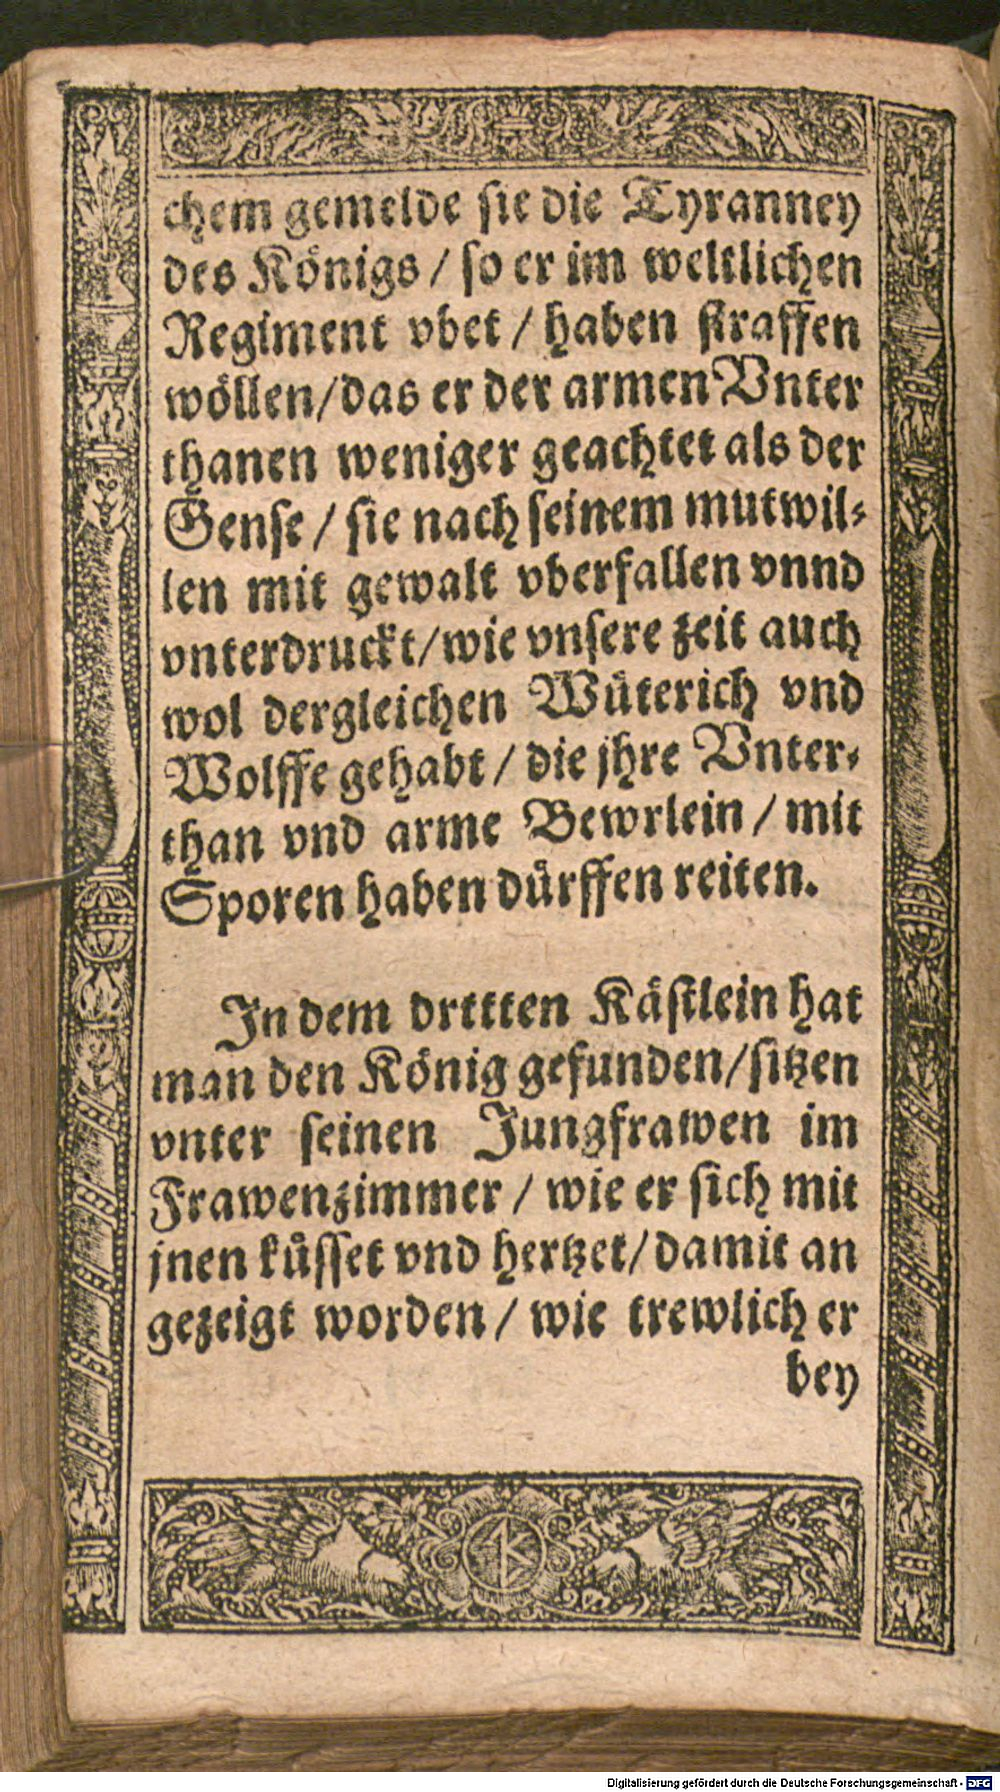 chem gemelde sie die Tyranney
des Königs / so er im weltlichen
Regiment vbet / haben straffen
wöllen/das er der armen Vnter
thanen weniger geachtet als der
Gense / sie nach seinem mutwil⸗
len mit gewalt vberfallen vnnd
vnterdruckt/wie vnsere zeit auch
wol dergleichen Wüterich vnd
Wolffe gehabt / die jhre Vnter⸗
than vnd arme Bewrlein / mit
Sporen haben dürffen reiten.
In dem drttten Kästlein hat
man den König gefunden/sitzen
vnter seinen Jungfrawen im
Frawenzimmer / wie er sich mit
jnen küsset vnd hertzet/damit an
gezeigt worden / wie trewlich er
bey
Digitalisierung gefördert durch die Deutsche Forschungsgemeinschaft - DFG